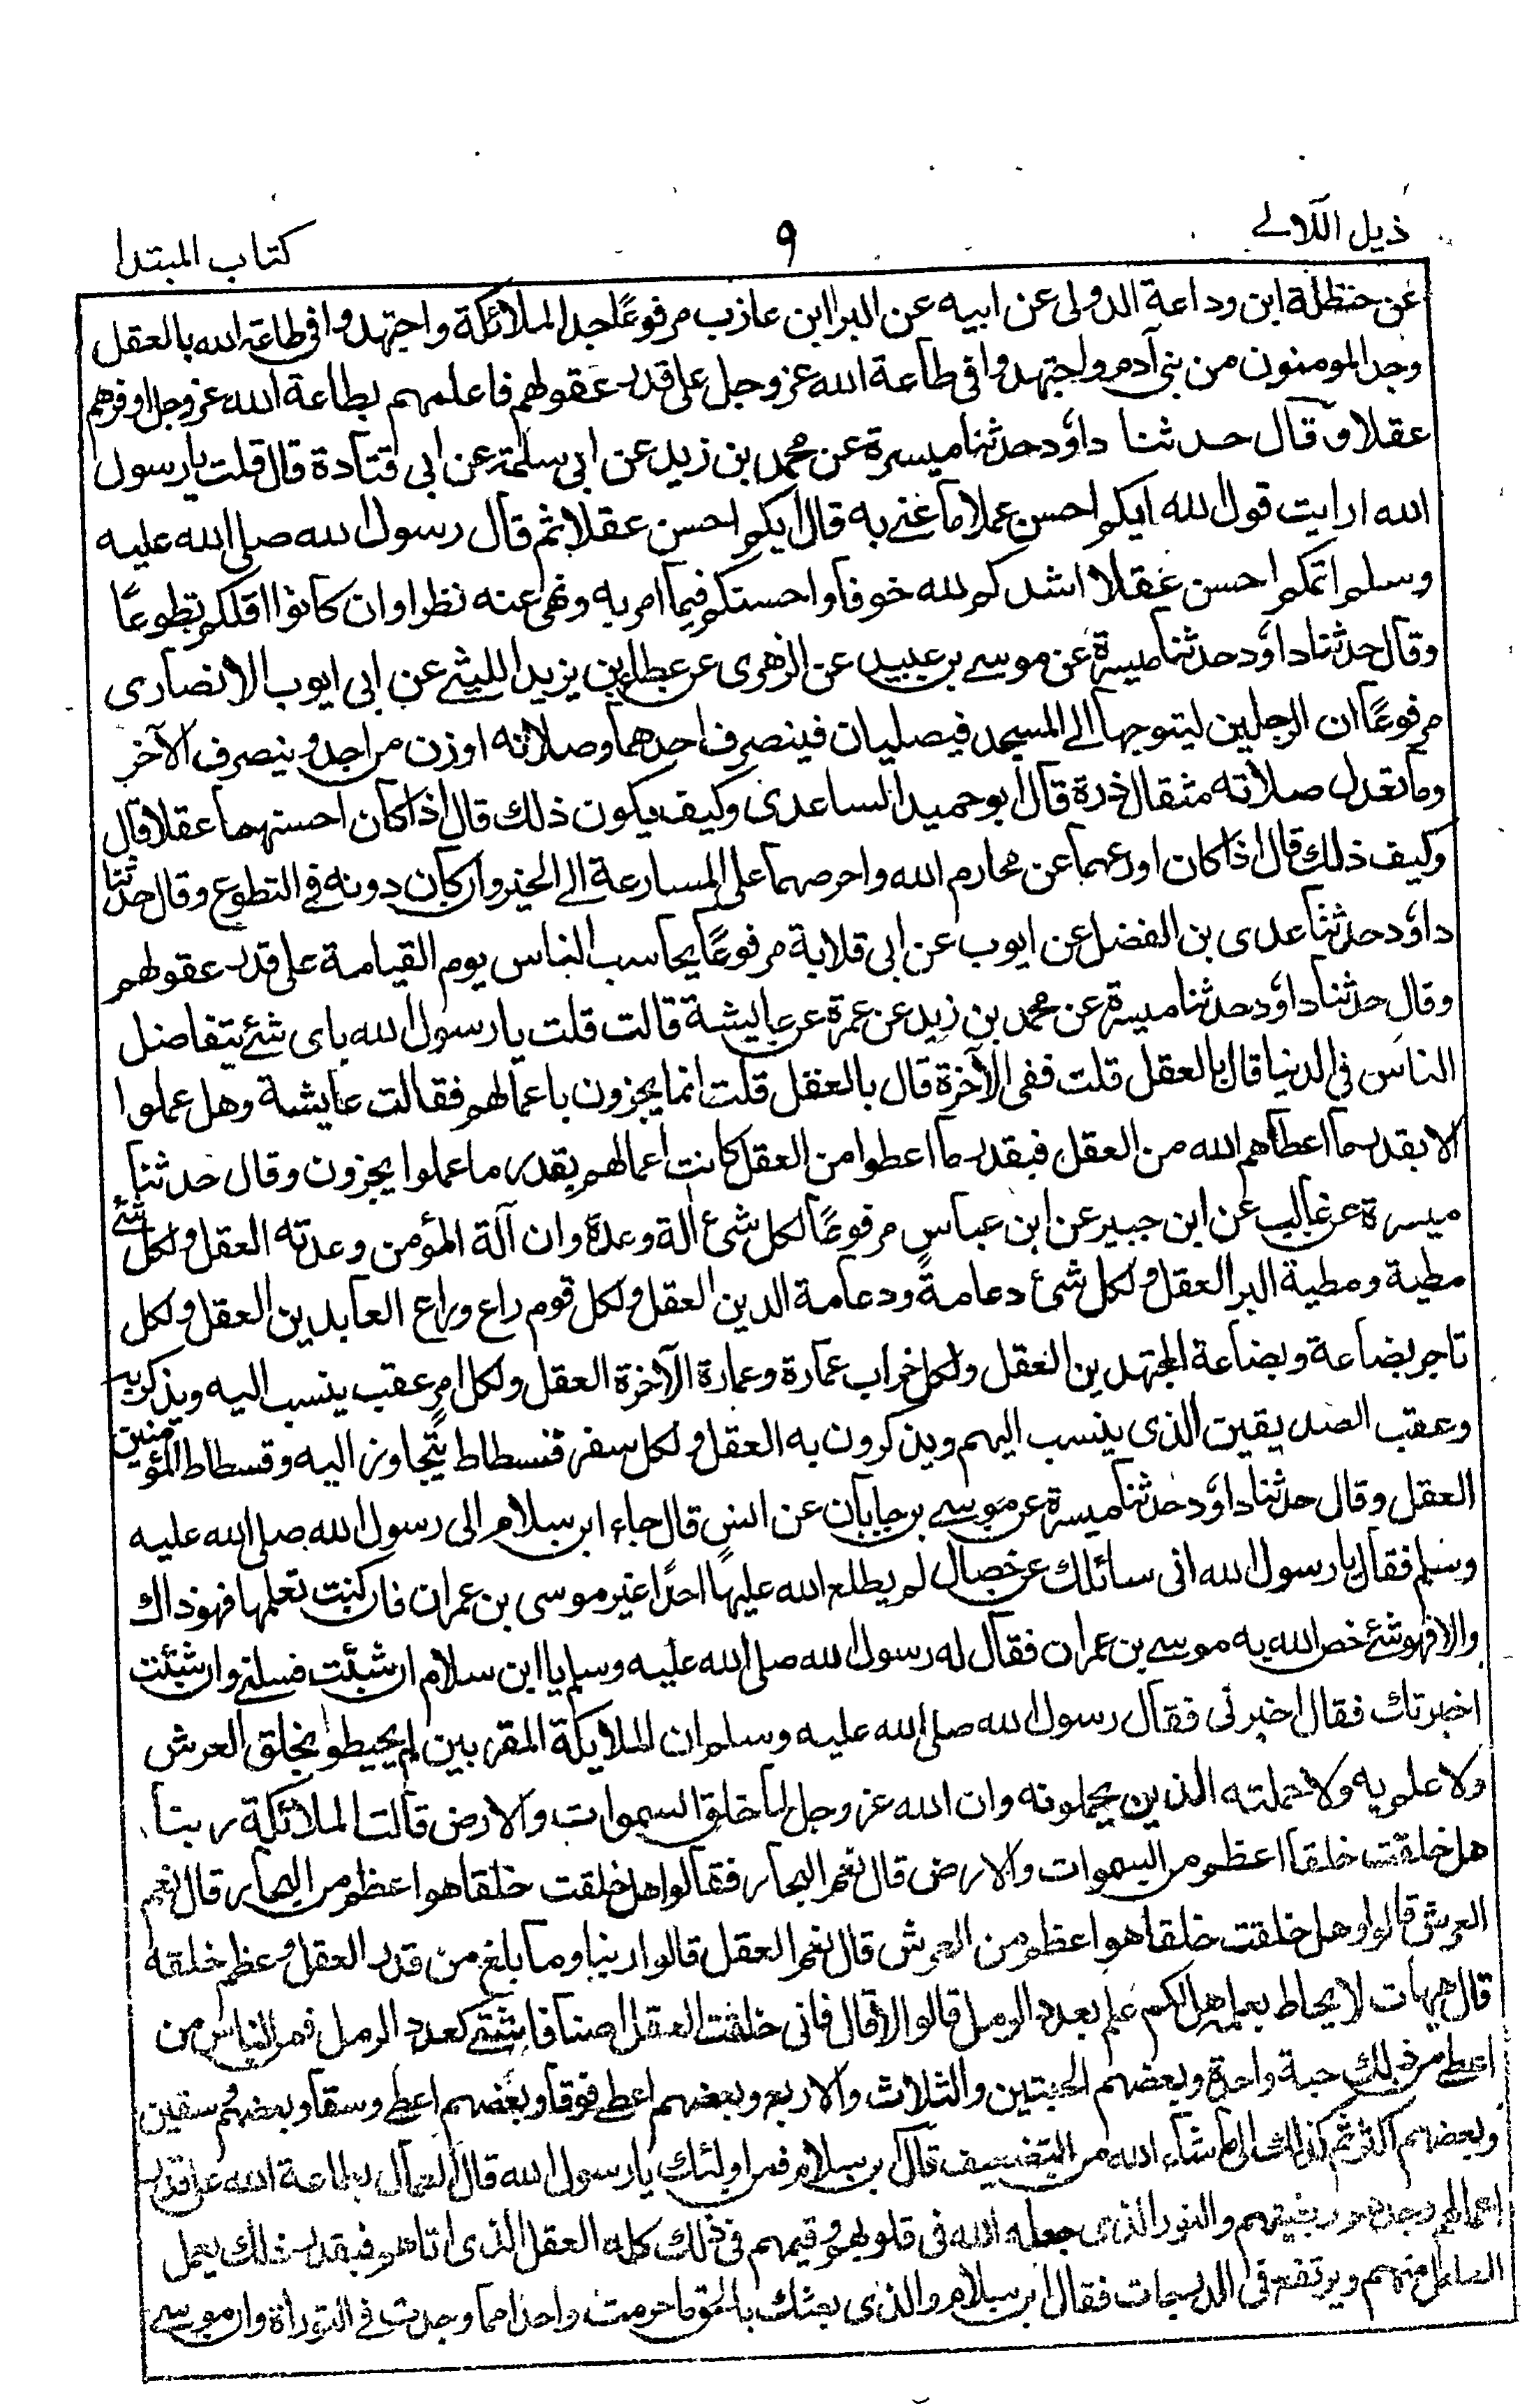 ذيل اللآلے
۹
كتاب المبتدا
عن حنظلة ابن وداعة الدولى عن ابيه عن البرا ابن عازب مرفوعًا جد الملائكة واجتهدوا فى طاعة الله بالعقل
وجد المومنون من بنى آدم واجتهدوا فى طاعة الله عز وجل على قدر عقولهم فاعلمهم بطاعة الله عز وجل اوفرهم
عقلا وقال حدثنا داؤد حدثنا ميسرة عن محمد بن زيد عن ابى سلمة عن ابى قتادة قال قلت يا رسول
الله ارايت قول الله ايكم احسن عملا ما غنے به قال ايكم احسن عقلا ثم قال رسول الله صلى الله عليه
وسلم اتمكم احسن عقلا اشدكم لله خوفا واحسنكم فيما امر به ونهى عنه نظرا وان كانوا اقلكم تطوعًا
وقال حدثنا داؤد حدثنا ميسرة عن موسے بن عبيد عن الزهرى عن عطاء بن يزيد الليثے عن ابى ايوب الانصارى
مرفوعًا ان الرجلين ليتوجها الے المسجد فيصليان فينصرف احدهما وصلاته اوزن من احد وينصرف الآخر
وما تعدل صلاته مثقال ذرة قال ابو حميد الساعدى وكيف يكون ذلك قال اذا كان احسنهما عقلا قال
وكيف ذلك قال اذا كان اورعهما عن محارم الله واحرصهما على المسارعة الے الخير وان كان دونه فے التطوع وقال حدثنا
داؤد حدثنا عدى بن الفضل عن ايوب عن ابى قلابة مرفوعًا يحاسب الناس يوم القيامة على قدر عقولهم
وقال حدثنا داؤد حدثنا ميسرة عن محمد بن زيد عن عمرة عن عايشة قالت قلت يا رسول الله باى شئے يتفاضل
الناس فى الدنيا قال بالعقل قلت ففى الآخرة قال بالعقل قلت انما يجزون باعمالهم فقالت عايشة وهل عملوا
الا بقدر ما اعطاهم الله من العقل فبقدر ما اعطوا من العقل كانت اعمالهم بقدر ما عملوا يجزون وقال حدثنا
ميسرة عن غالب عن ابن جبير عن ابن عباس مرفوعًا لكل شئ آلة وعدة وان آلة المؤمن وعدته العقل ولكل شئے
مطية ومطية البر العقل ولكل شئ دعامةً ودعامة الدين العقل ولكل قوم راع وراع العابدين العقل ولكل
تاجر بضاعة وبضاعة المجتهدين العقل ولكل خراب عمارة وعمارة الآخرة العقل ولكل امرٍ عقب ينسب اليه ويذكر به
وعقب الصديقين الذى ينسب اليهم ويذكرون به العقل ولكل سفر فسطاط يتجاوز اليه وفسطاط المؤمنين
العقل وقال حدثنا داؤد حدثنا ميسرة عن موسے بن جابان عن انس قال جاء ابن سلام الى رسول الله صلى الله عليه
وسلم فقال يا رسول الله انى سائلك عن خصال لم يطلع الله عليها احدًا غير موسى بن عمران فان كنت تعلمها فهو ذاك
والا فهو شئے خص الله به موسے بن عمران فقال له رسول الله صلى الله عليه وسلم يا ابن سلام ان شئت فسلنے وان شئت
اخبرتك فقال اخبرنى فقال رسول الله صلى الله عليه وسلم ان الملايكة المقربين لم يحيطوا بخلق العرش
ولا علم به ولا حملته الذين يحملونه وان الله عز وجل لما خلق السموات والارض قالت الملائكة ربنا
هل خلقت خلقا اعظم من السموات والارض قال نعم البحار فقالوا هل خلقت خلقا هو اعظم من البحار قال نعم
العرش قالوا وهل خلقت خلقا هو اعظم من العرش قال نعم العقل قالوا ربنا وما بلغ من قدر العقل وعظم خلقه
قال هيهات لا يحاط بعلمه هل لكم علم بعدد الرمل قالوا لا قال فانى خلقت العقل اصنافا شتے كعدد الرمل فمن الناس من
اعطے من ذلك حبة واحدة وبعضهم الحبتين والثلاث والاربع وبعضهم اعطے فرقا وبعضهم اعطے وسقا وبعضهم وسقين
وبعضهم اكثر ثم كذلك الى ما شاء الله من التضعيف قال ابن سلام فمن اولئك يا رسول الله قال العمال بطاعة الله على قدر
اعمالهم وجدهم ويقينهم والنور الذى جعله الله فى قلوبهم وقيمهم فى ذلك كله العقل الذى اتاهم فبقدر ذلك يعمل
العامل منهم ويرتفع فى الدرجات فقال ابن سلام والذى بعثك بالحق ما خرمت واحدا مما وجدت فے التوراة وان موسے